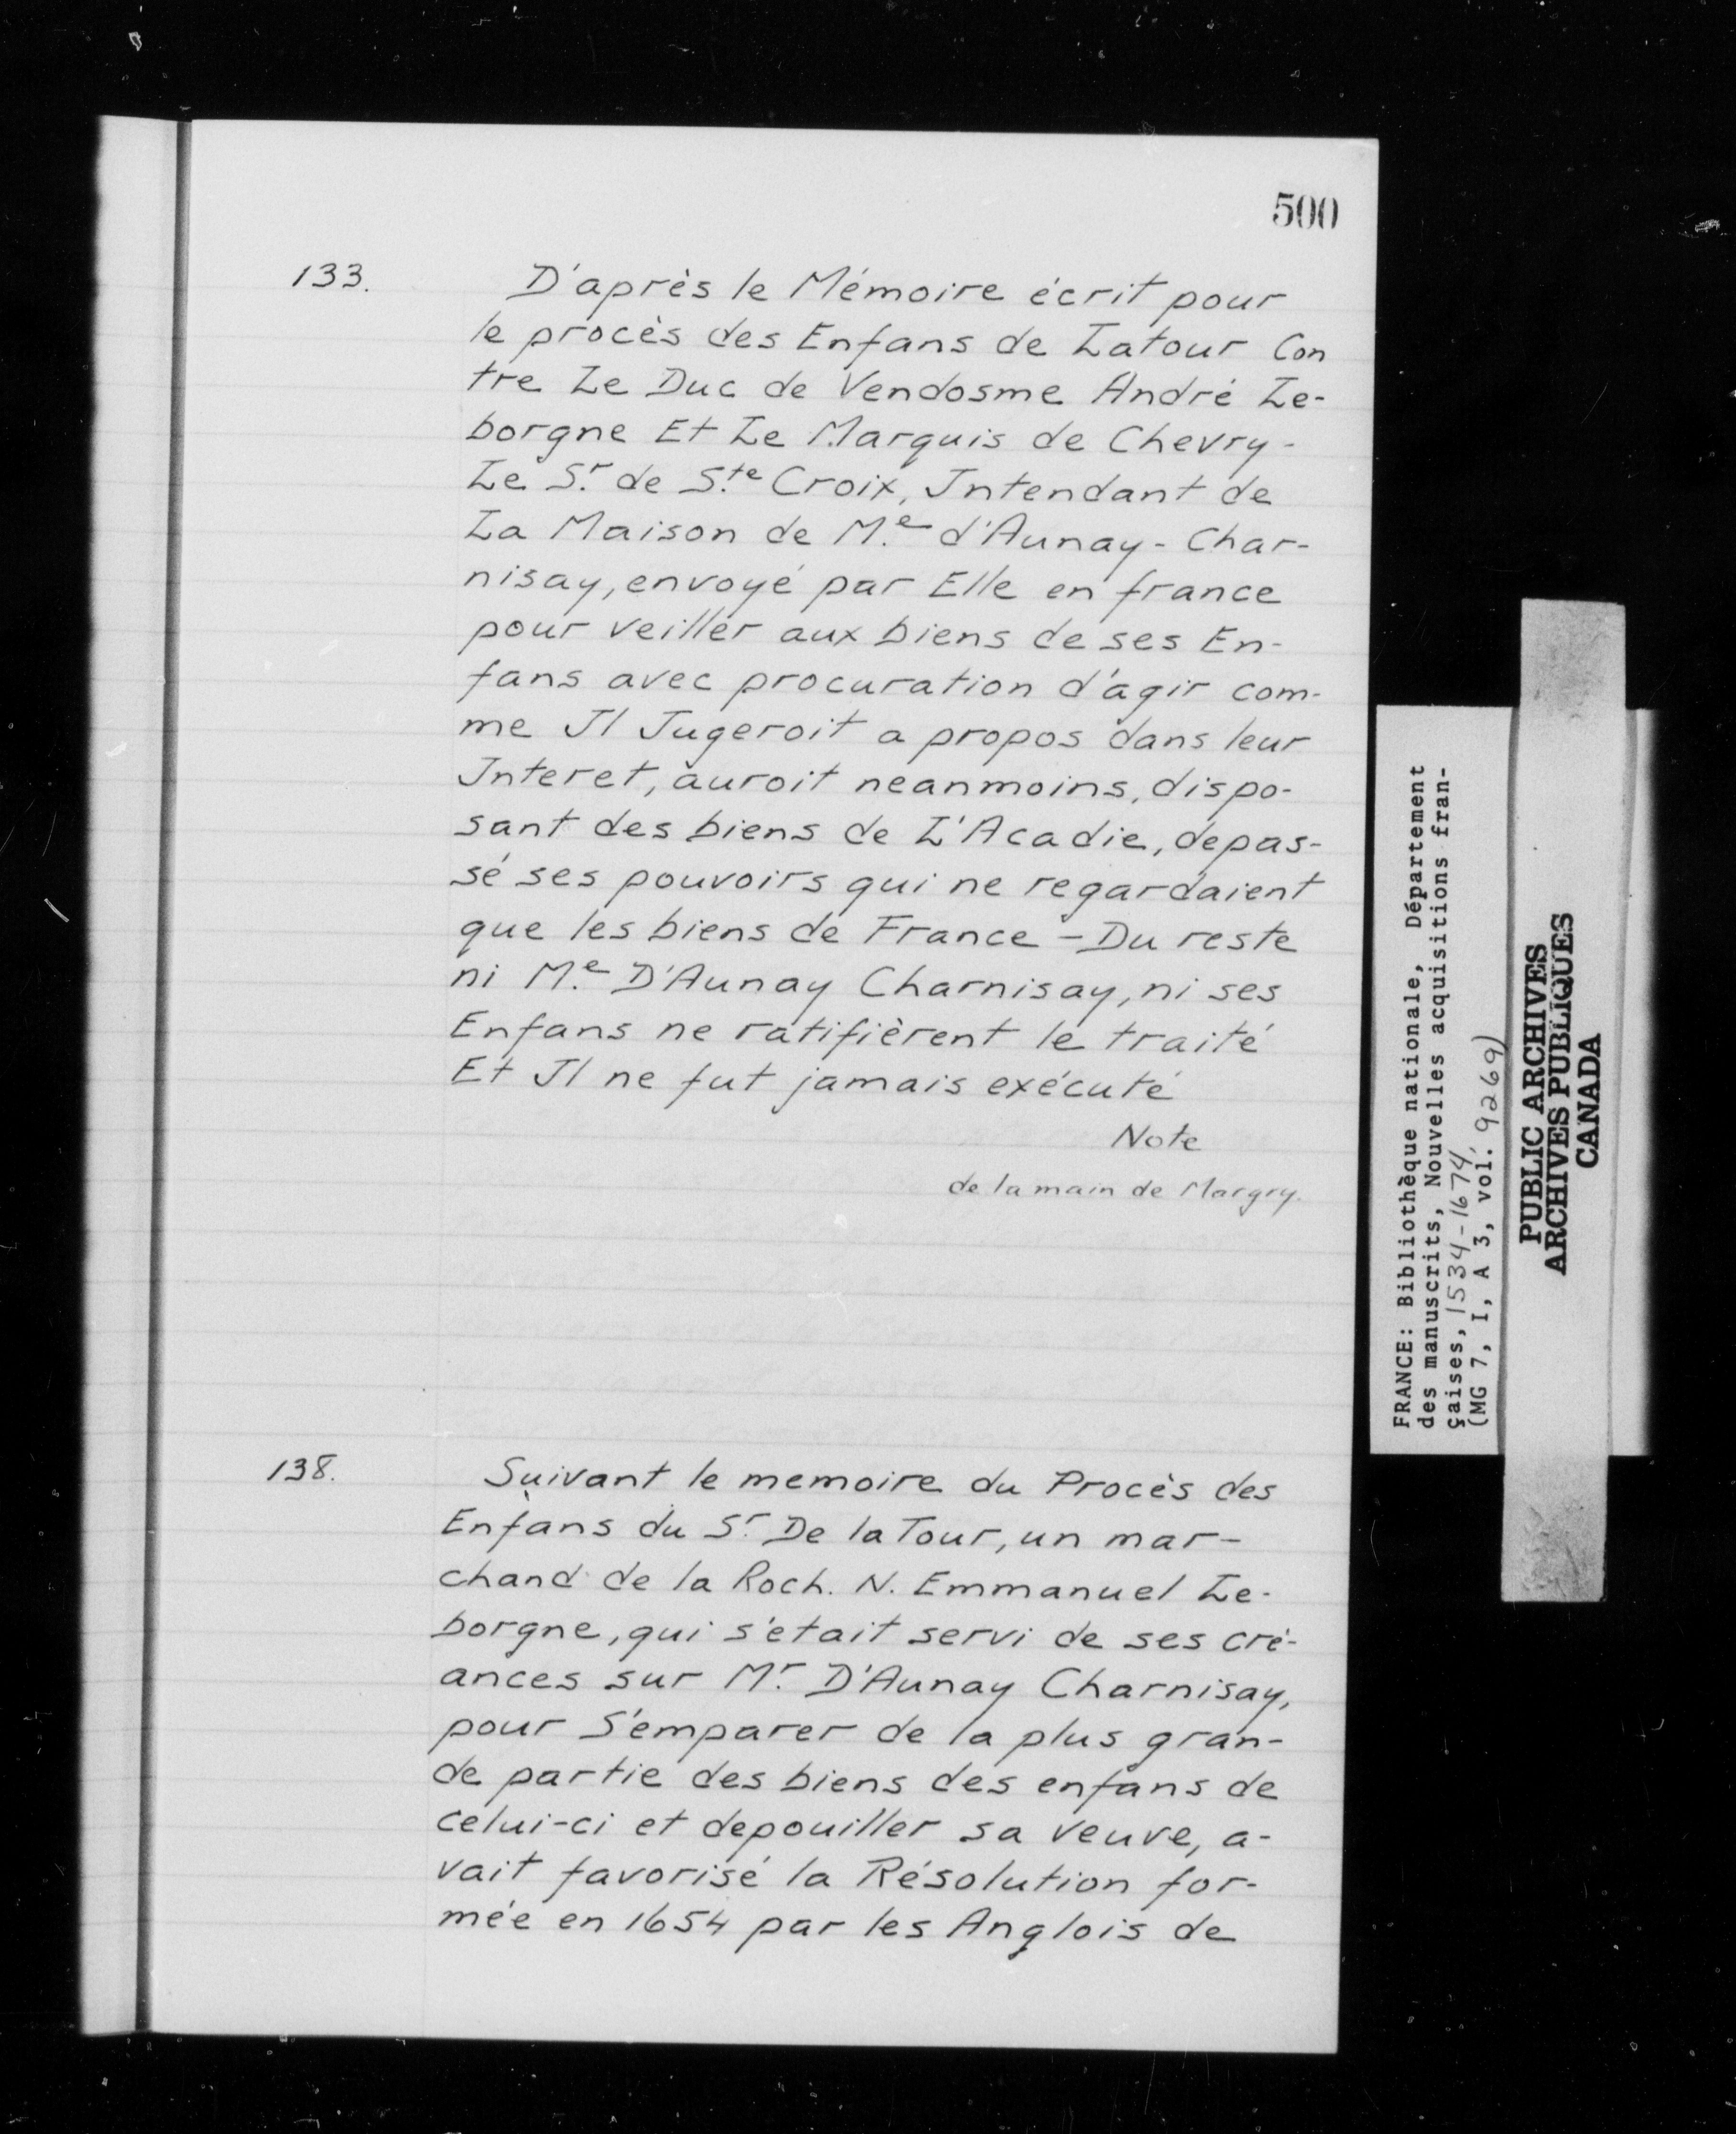 500
133.
D'après le Mémoire écrit pour
le procès des Enfans de Latour Con
tre Le Duc de Vendosme André Le-
borgne Et Le Marquis de Chevry -
Le Sr. de Ste. Croix, Intendant de
La Maison de Me. d'Aunay - Char-
nisay, envoyé par Elle en france
pour veiller aux biens de ses En-
fans avec procuration d'agir com-
me Il Jugeroit a propos dans leur
Interet, auroit neanmoins, dispo-
sant des biens de L'Acadie, depas-
sé ses pouvoirs qui ne regardaient
que les biens de France - Du reste
ni Me. D'Aunay Charnisay, ni ses
Enfans ne ratifièrent le traité
Et Il ne fut jamais exécuté
Note
de la main de Margry.
138.
Suivant le memoire du Procès des
Enfans du Sr. De la Tour, un mar-
chand de la Roch. N. Emmanuel Le-
borgne, qui s'etait servi de ses cré-
ances sur Mr. D'Aunay Charnisay,
pour S'emparer de la plus gran-
de partie des biens des enfans de
celui-ci et depouiller sa veuve, a-
vait favorisé la Résolution for-
mée en 1654 par les Anglois de
FRANCE: Bibliothèque nationale, Département
des manuscrits, Nouvelles acquisitions fran-
çaises, 1534-1674,
(MG 7, I, A 3, vol. 9269)
PUBLIC ARCHIVES
ARCHIVES PUBLIQUES
CANADA